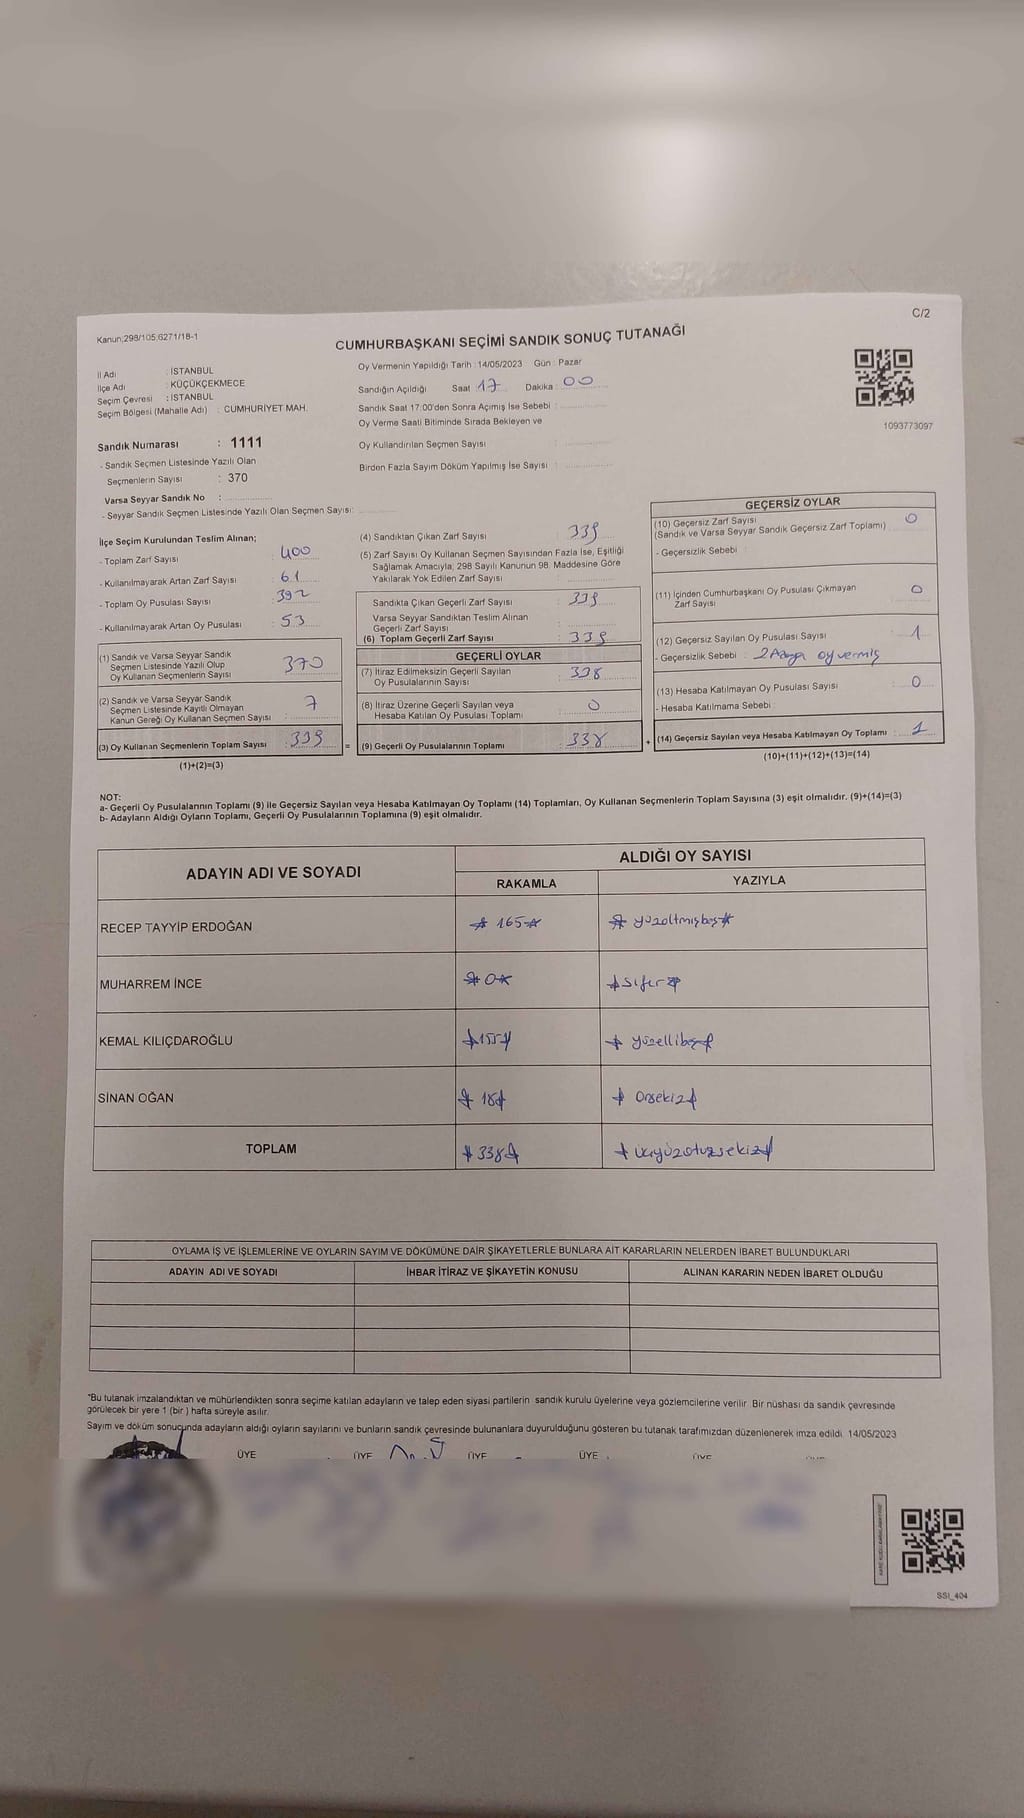 C/2
Kanun:298/105;6271/18-1
CUMHURBAŞKANI SEÇİMİ SANDIK SONUÇ TUTANAĞI
İl Adı : İSTANBUL
İlçe Adı : KÜÇÜKÇEKMECE
Seçim Çevresi : İSTANBUL
Seçim Bölgesi (Mahalle Adı) : CUMHURİYET MAH.
Sandık Numarası : 1111
- Sandık Seçmen Listesinde Yazılı Olan
Seçmenlerin Sayısı : 370
Varsa Seyyar Sandık No :
- Seyyar Sandık Seçmen Listesinde Yazılı Olan Seçmen Sayısı:
Oy Vermenin Yapıldığı Tarih : 14/05/2023 Gün : Pazar
Sandığın Açıldığı Saat 17 Dakika : 00
Sandık Saat 17:00'den Sonra Açımış İse Sebebi :
Oy Verme Saati Bitiminde Sırada Bekleyen ve
Oy Kullandırılan Seçmen Sayısı :
Birden Fazla Sayım Döküm Yapılmış İse Sayısı :
1093773097
İlçe Seçim Kurulundan Teslim Alınan;
- Toplam Zarf Sayısı : 400
- Kullanılmayarak Artan Zarf Sayısı : 61
- Toplam Oy Pusulası Sayısı : 392
- Kullanılmayarak Artan Oy Pusulası : 53
(1) Sandık ve Varsa Seyyar Sandık
Seçmen Listesinde Yazılı Olup
Oy Kullanan Seçmenlerin Sayısı : 370
(2) Sandık ve Varsa Seyyar Sandık
Seçmen Listesinde Kayıtlı Olmayan
Kanun Gereği Oy Kullanan Seçmen Sayısı : 7
(3) Oy Kullanan Seçmenlerin Toplam Sayısı : 339
(1)+(2)=(3)
(4) Sandıktan Çıkan Zarf Sayısı : 339
(5) Zarf Sayısı Oy Kullanan Seçmen Sayısından Fazla İse, Eşitliği
Sağlamak Amacıyla; 298 Sayılı Kanunun 98. Maddesine Göre
Yakılarak Yok Edilen Zarf Sayısı :
Sandıkta Çıkan Geçerli Zarf Sayısı : 339
Varsa Seyyar Sandıktan Teslim Alınan
Geçerli Zarf Sayısı :
(6) Toplam Geçerli Zarf Sayısı : 339
GEÇERLİ OYLAR
(7) İtiraz Edilmeksizin Geçerli Sayılan
Oy Pusulalarının Sayısı : 338
(8) İtiraz Üzerine Geçerli Sayılan veya
Hesaba Katılan Oy Pusulası Toplamı : 0
= (9) Geçerli Oy Pusulalarının Toplamı : 338 +
GEÇERSİZ OYLAR
(10) Geçersiz Zarf Sayısı : 0
(Sandık ve Varsa Seyyar Sandık Geçersiz Zarf Toplamı)
- Geçersizlik Sebebi :
(11) İçinden Cumhurbaşkanı Oy Pusulası Çıkmayan
Zarf Sayısı : 0
(12) Geçersiz Sayılan Oy Pusulası Sayısı : 1
- Geçersizlik Sebebi : 2 Adaya oy vermiş
(13) Hesaba Katılmayan Oy Pusulası Sayısı : 0
- Hesaba Katılmama Sebebi :
(14) Geçersiz Sayılan veya Hesaba Katılmayan Oy Toplamı : 1
(10)+(11)+(12)+(13)=(14)
NOT:
a- Geçerli Oy Pusulalarının Toplamı (9) ile Geçersiz Sayılan veya Hesaba Katılmayan Oy Toplamı (14) Toplamları, Oy Kullanan Seçmenlerin Toplam Sayısına (3) eşit olmalıdır. (9)+(14)=(3)
b- Adayların Aldığı Oyların Toplamı, Geçerli Oy Pusulalarının Toplamına (9) eşit olmalıdır.
ADAYIN ADI VE SOYADI ALDIĞI OY SAYISI
RAKAMLA YAZIYLA
RECEP TAYYİP ERDOĞAN 165 yüzaltmışbeş
MUHARREM İNCE 0 sıfır
KEMAL KILIÇDAROĞLU 155 yüzellibeş
SİNAN OĞAN 18 Onsekiz
TOPLAM 338 üçyüzotuzsekiz
OYLAMA İŞ VE İŞLEMLERİNE VE OYLARIN SAYIM VE DÖKÜMÜNE DAİR ŞİKAYETLERLE BUNLARA AİT KARARLARIN NELERDEN İBARET BULUNDUKLARI
ADAYIN ADI VE SOYADI İHBAR İTİRAZ VE ŞİKAYETİN KONUSU ALINAN KARARIN NEDEN İBARET OLDUĞU
*Bu tutanak imzalandıktan ve mühürlendikten sonra seçime katılan adayların ve talep eden siyasi partilerin sandık kurulu üyelerine veya gözlemcilerine verilir. Bir nüshası da sandık çevresinde
görülecek bir yere 1 (bir ) hafta süreyle asılır.
Sayım ve döküm sonucunda adayların aldığı oyların sayılarını ve bunların sandık çevresinde bulunanlara duyurulduğunu gösteren bu tutanak tarafımızdan düzenlenerek imza edildi. 14/05/2023
ÜYE ÜYE ÜYE ÜYE ÜYE
SSI_404